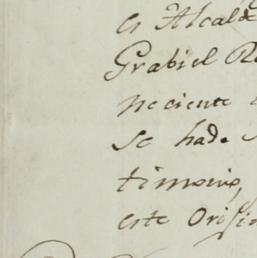 es Alcald
Grabiel R
neciente
se hade
timonio,
este Orig